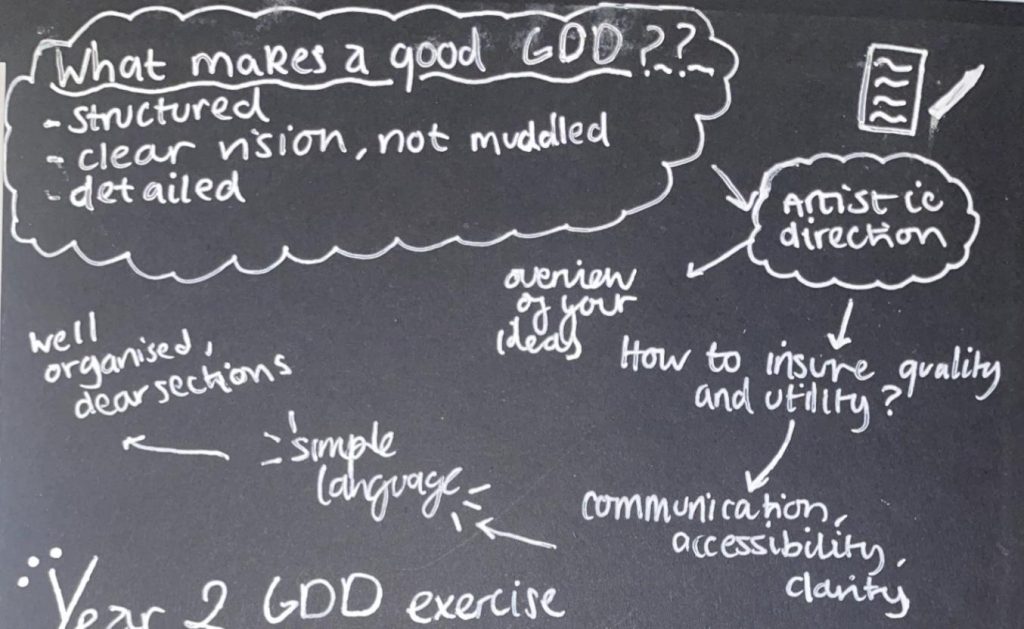 What makes a good GDD???
- structured
- clear vision, not muddled
- detailed
Artistic
direction
overview
of your
ideas
How to insure quality
and utility?
communication,
accessibility,
clarity
simple
language
well
organised,
clear sections
Year 2 GDD exercise